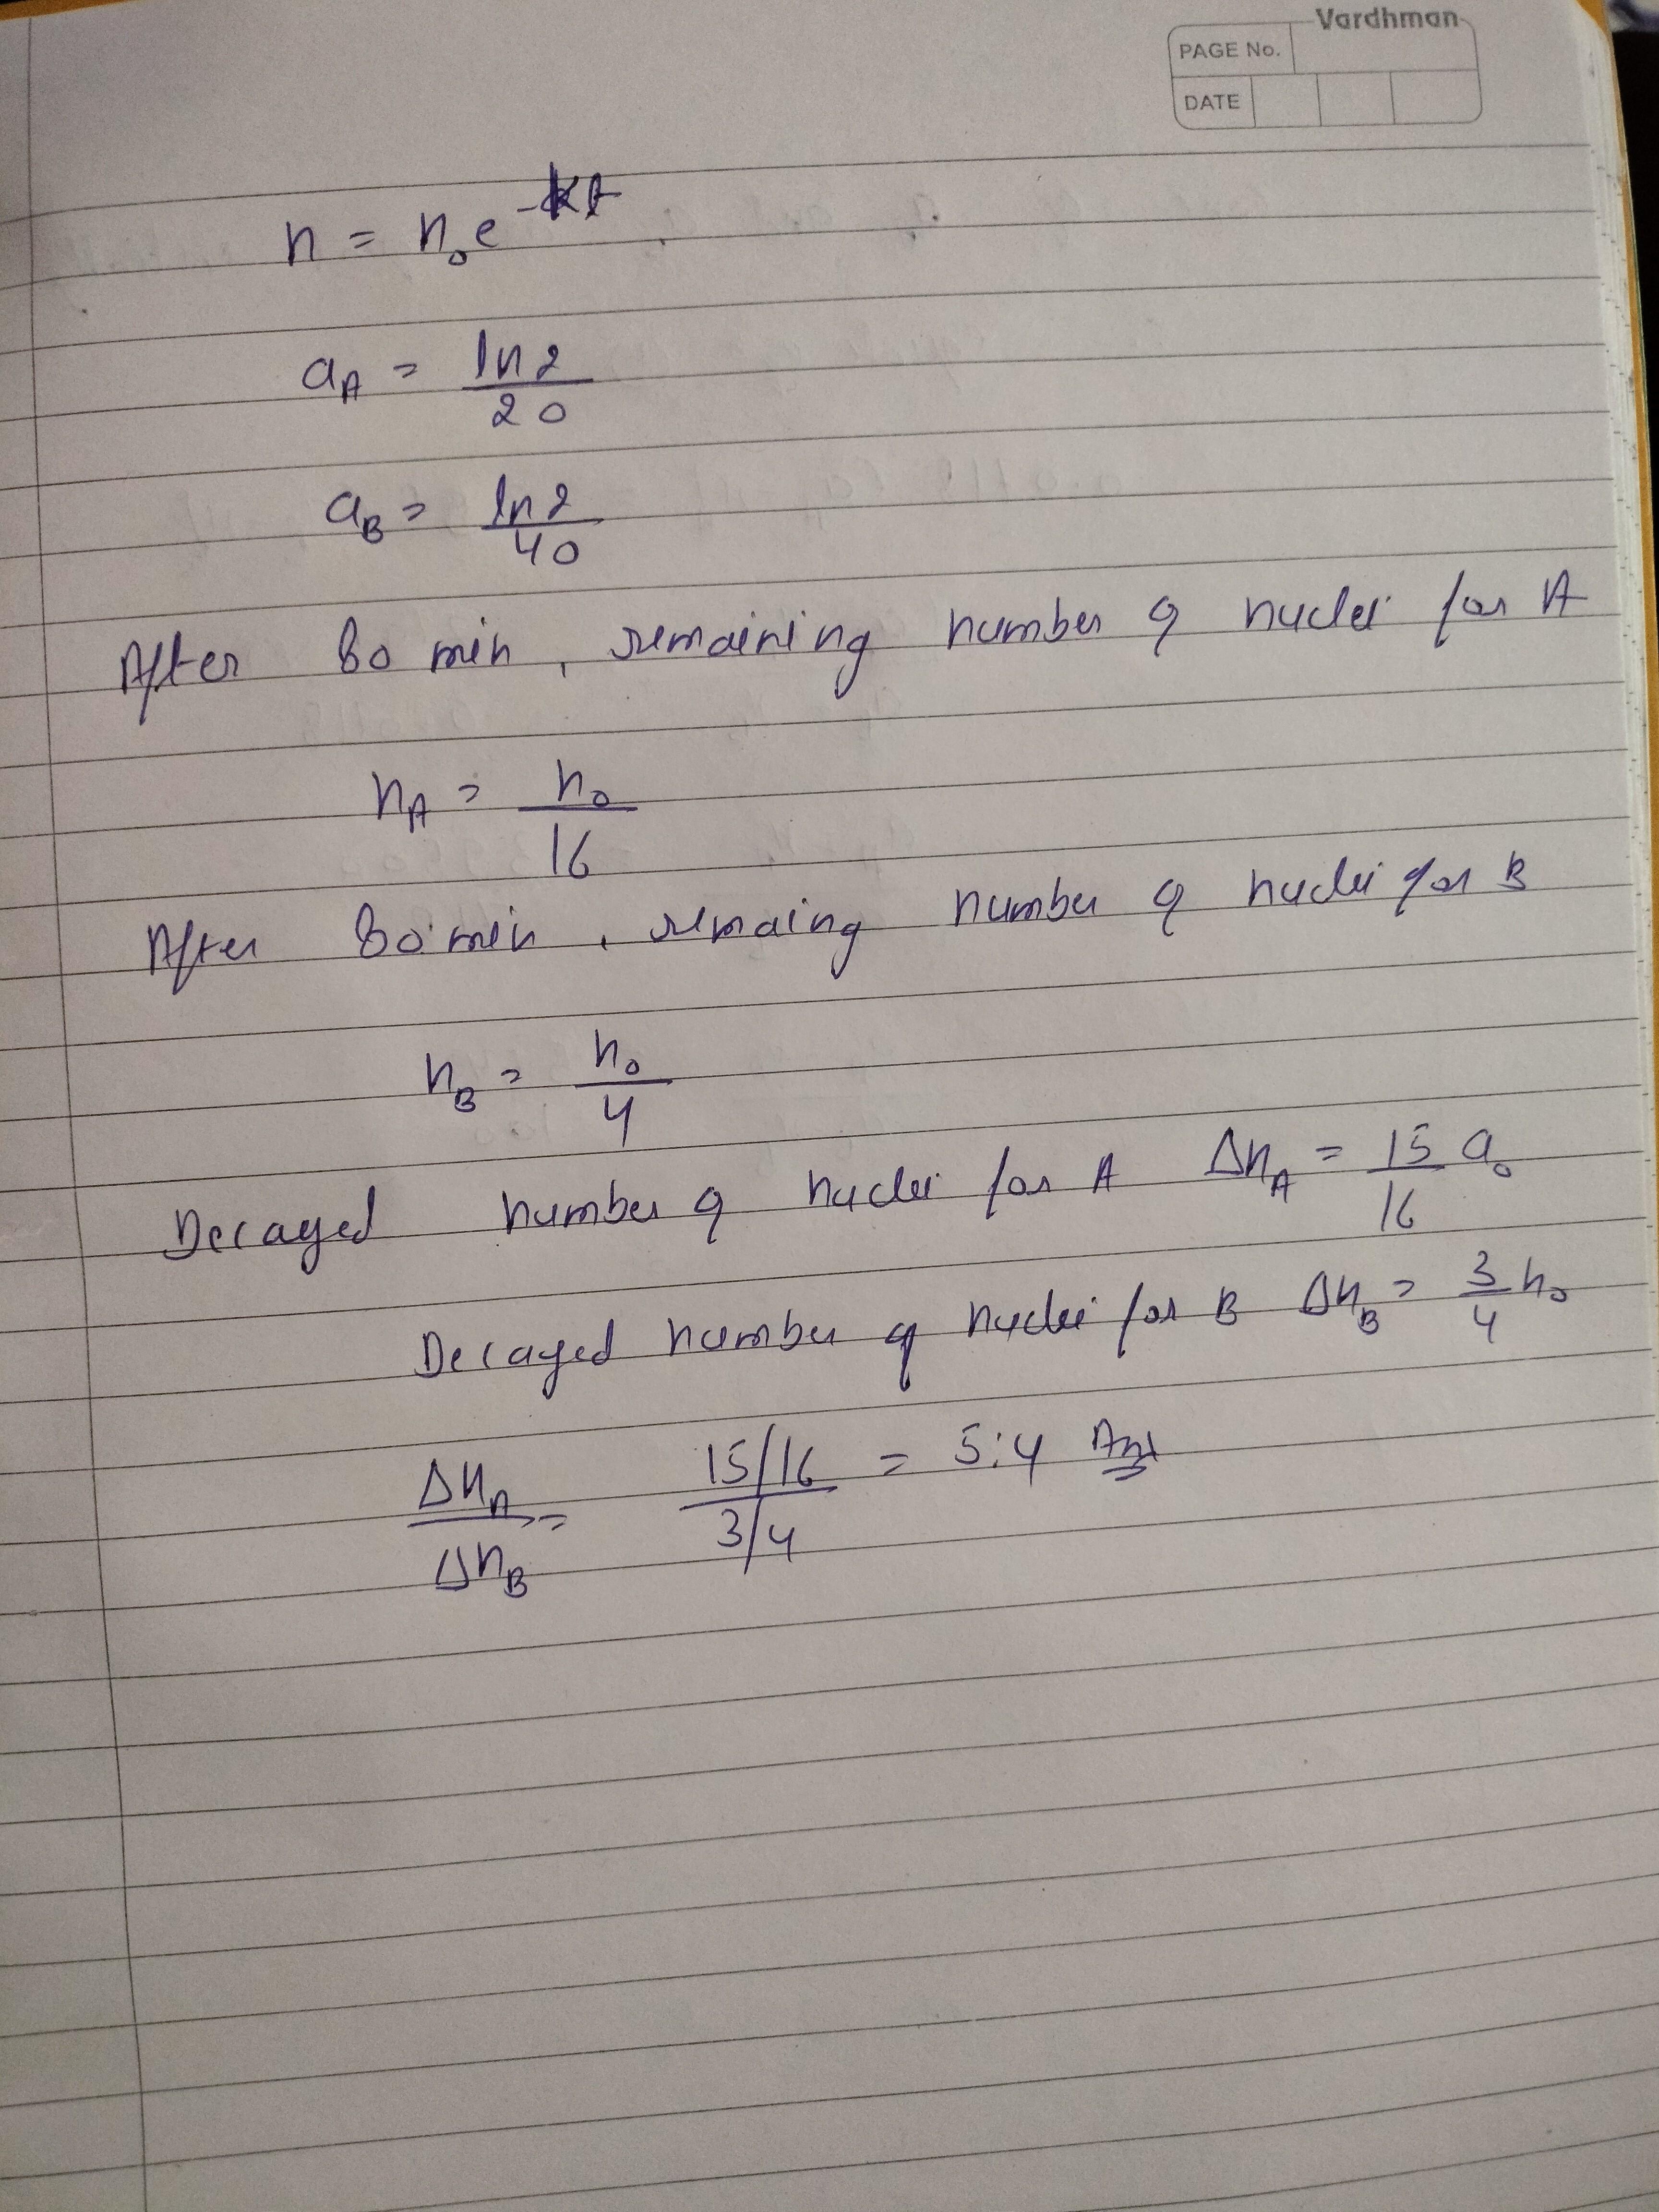 Vardhman
PAGE No.
DATE
n = n₀e^-kt
a_A = ln2/20
a_B = ln2/40
After 80 min, remaining number of nuclei for A
n_A = n₀/16
After 80 min, remaing number of nuclei for B
n_B = n₀/4
Decayed number of nuclei for A Δn_A = 15/16 a₀
Decayed number of nuclei for B Δn_B = 3/4 n₀
Δn_A/Δn_B = (15/16)/(3/4) = 5:4 Ans